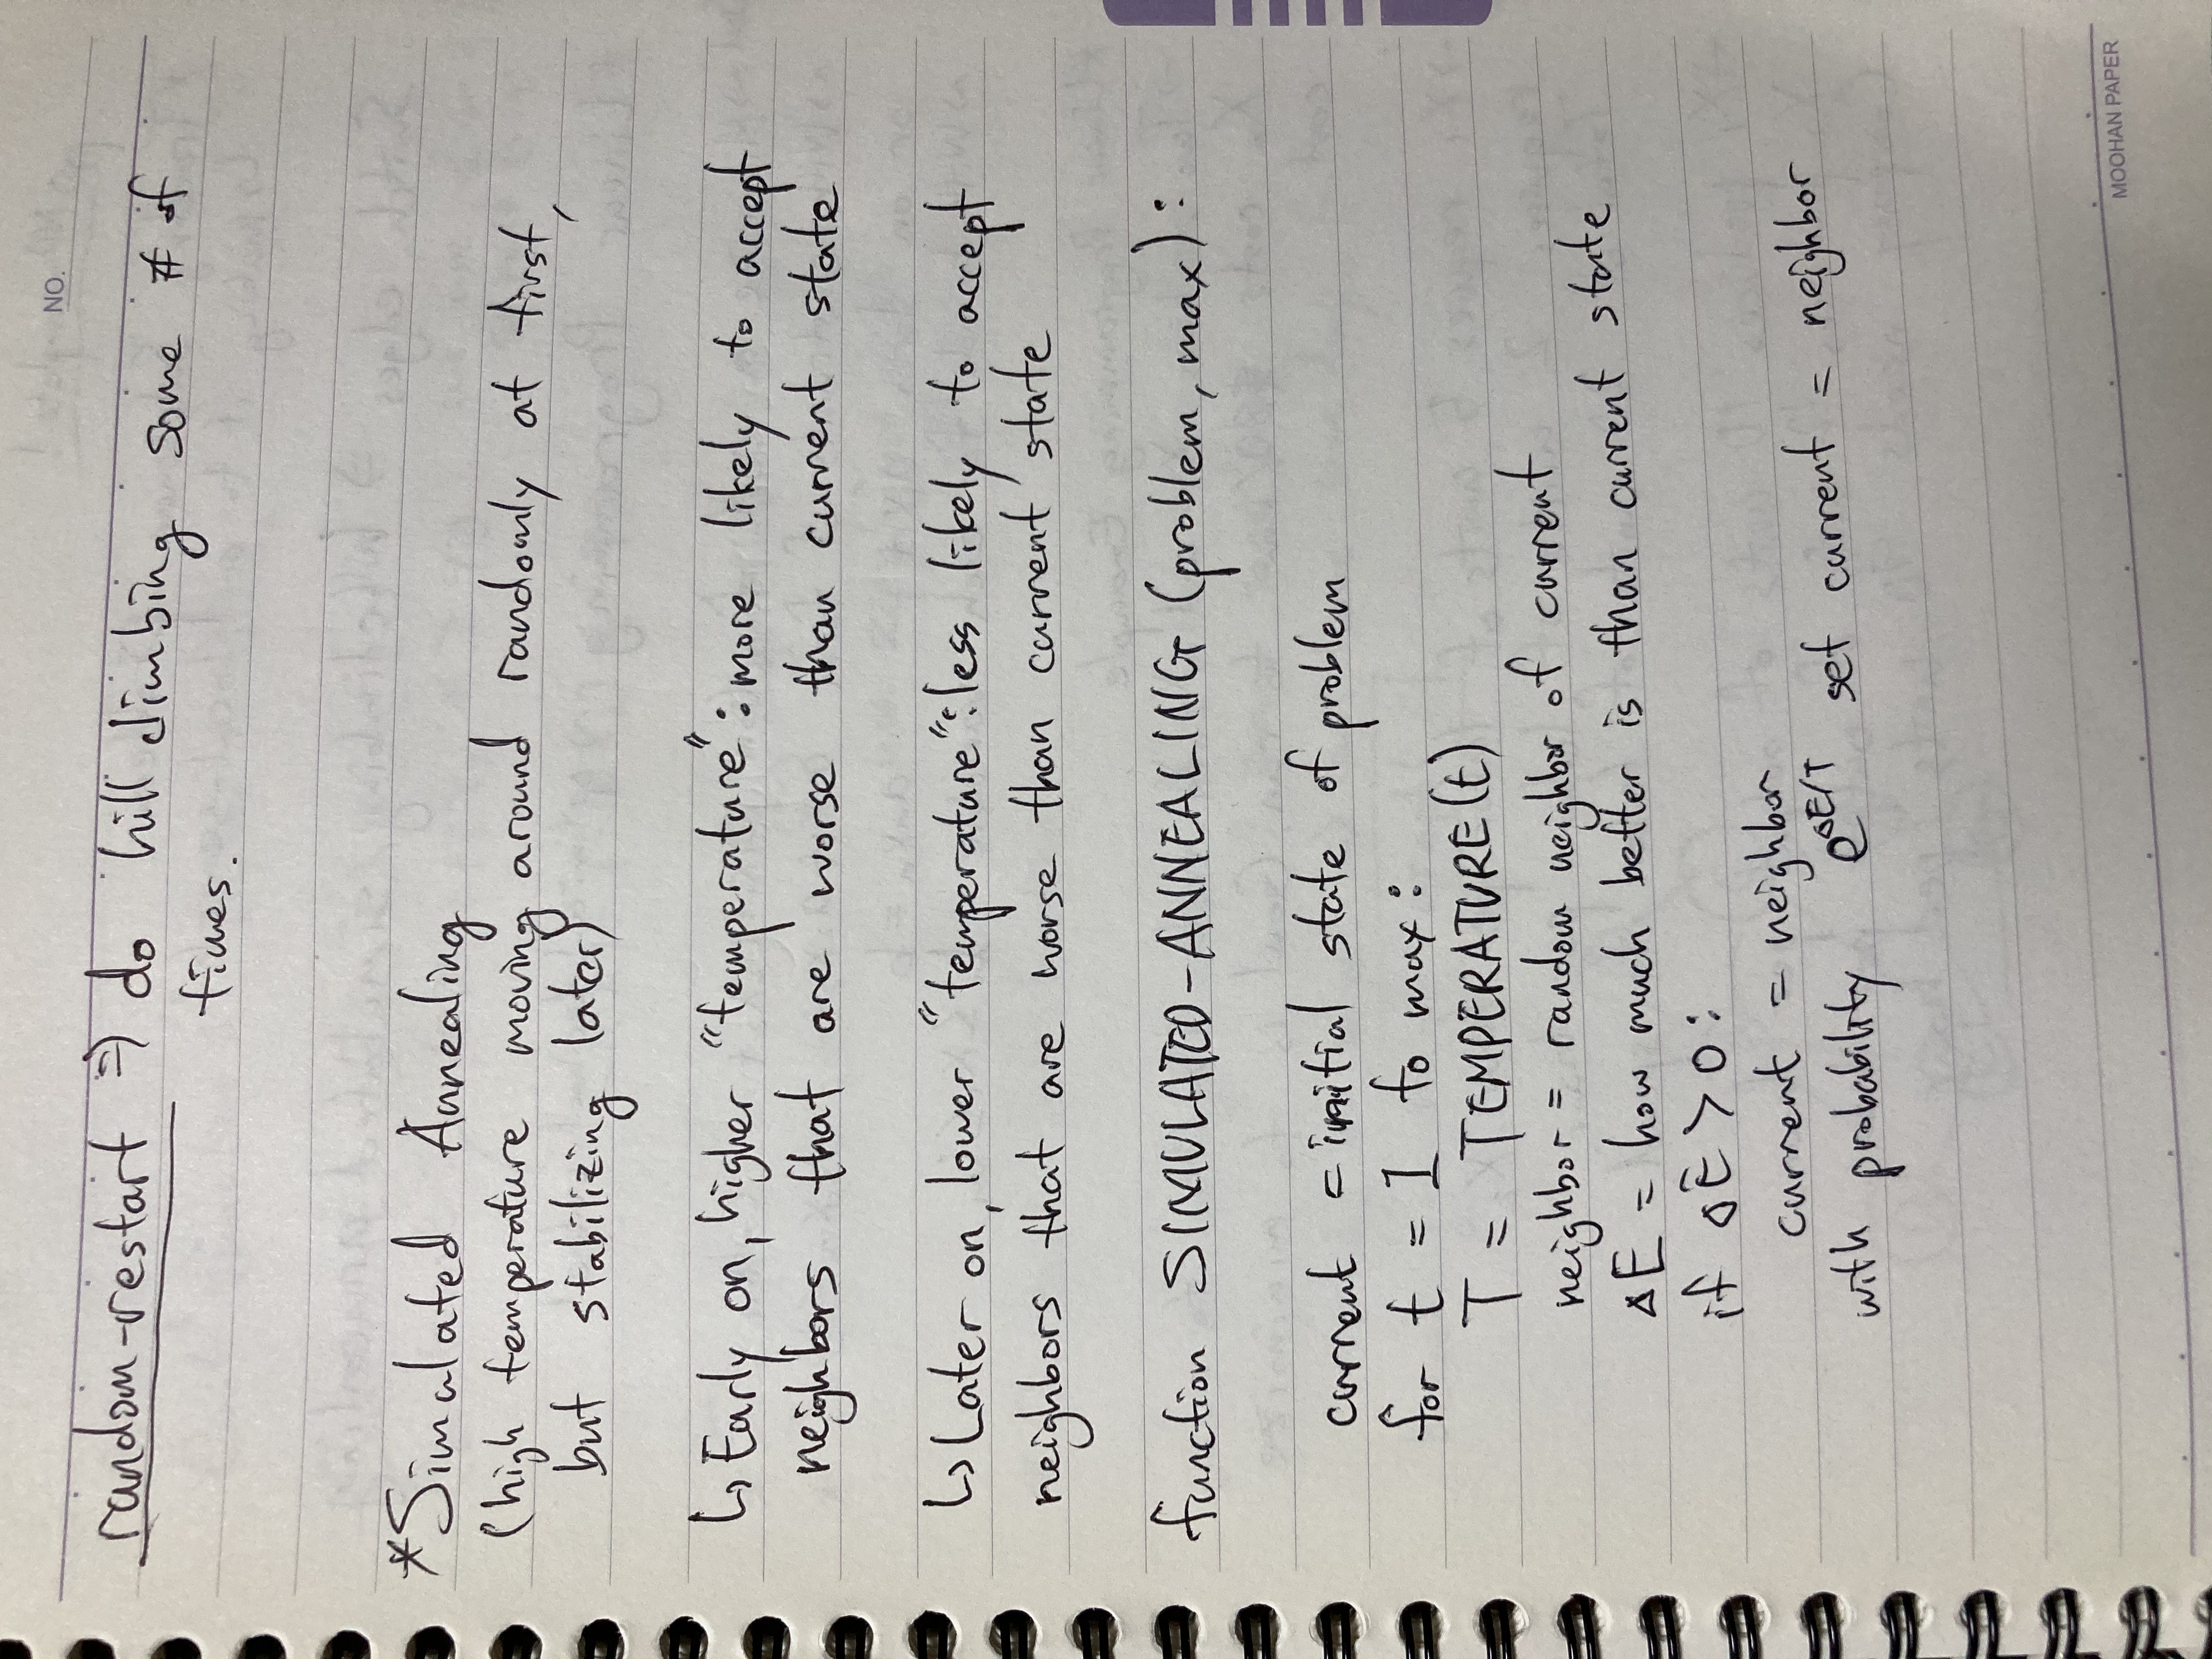 NO.
random-restart => do hill climbing some # of
times.
*Simulated Annealing
(high temperature moving around randomly at first,
but stabilizing later)
↳ Early on, higher "temperature": more likely to accept
neighbors that are worse than current state
↳ Later on, lower "temperature": less likely to accept
neighbors that are worse than current state
function SIMULATED-ANNEALING (problem, max):
current = initial state of problem
for t = 1 to max:
T = TEMPERATURE(t)
neighbor = random neighbor of current
ΔE = how much better is than current state
if ΔE > 0:
current = neighbor
with probability e^ΔE/T set current = neighbor
MOOHAN PAPER